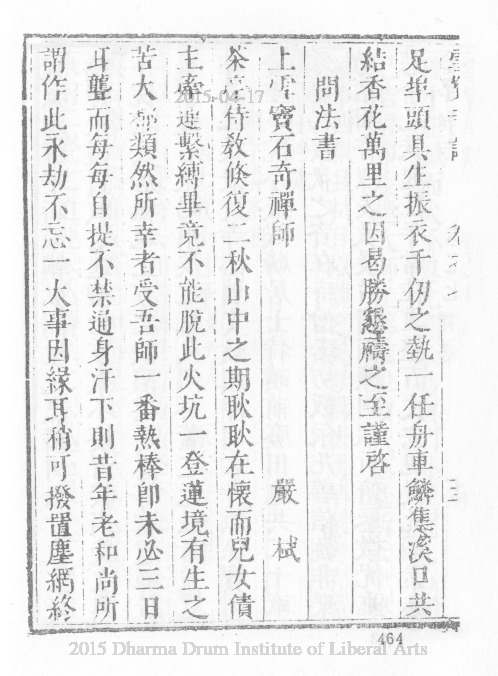 足峯頭具生振衣千仞之埶一任舟車鱗集溪口共
結香花萬里之因曷勝懇禱之至謹啓
問法書
上雪寶石奇禪師 嚴栻
茶 待敎倐復二秋山中之期耿耿在懷而兒女債
主索逋繫縛畢竟不能脫此火坑一登蓮境有生之
苦大 類然所幸者受吾師一番熱棒卽未必三日
耳聾而每每自提不禁通身汗下則昔年老和尚所
謂作此永劫不忘一大事因緣耳稍可撥置塵網終
2015-04-17
464
2015 Dharma Drum Institute of Liberal Arts